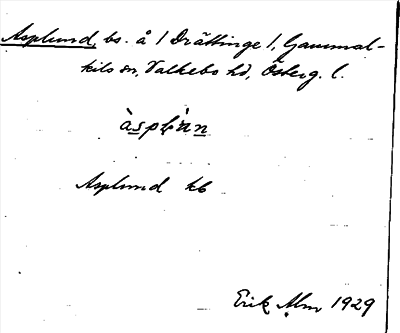 Asplund, bs. å 1 Drättinge 1, Gammal-
kils sn, Valkebo hd, Österg. l.
àsplùn
Asplund kb
Erik Alm 1929